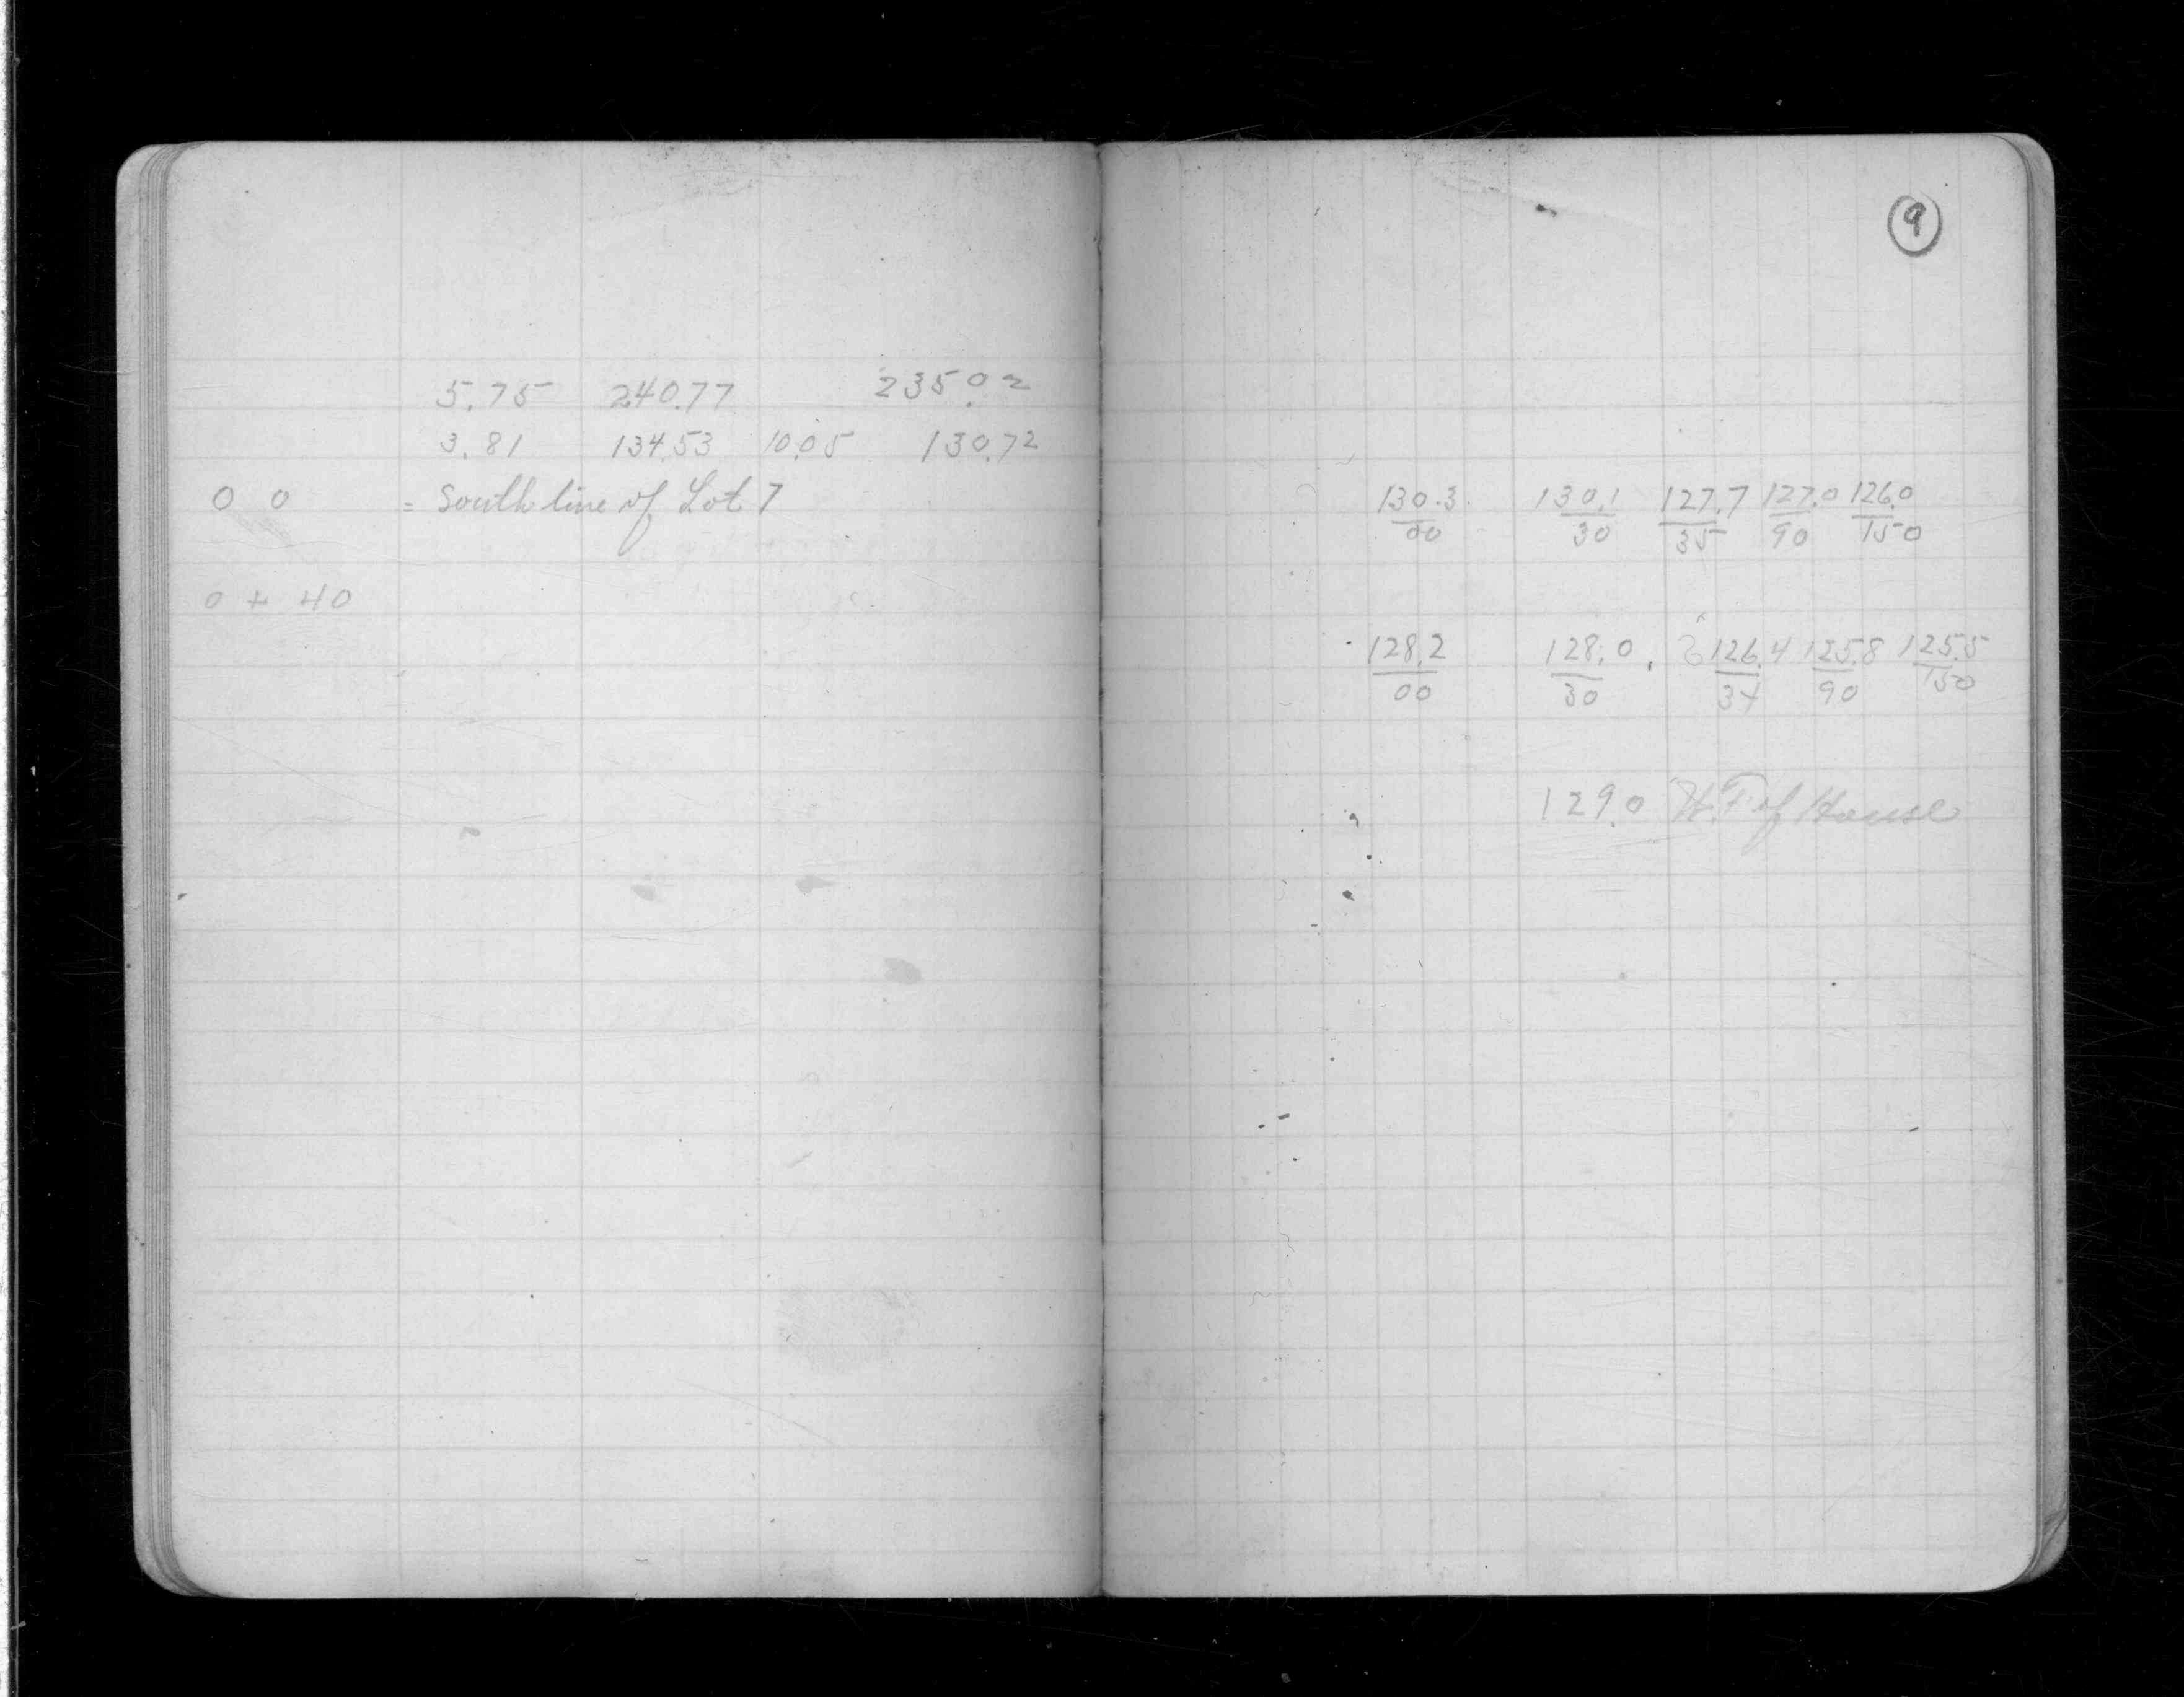 5.75 240.77 235.02
3.81 134.53 10.05 130.72
0 0 = South line of Lot 7
0 + 40
9
130.3 130.1 127.7 127.0 126.0
00 30 35 90 150
128.2 128.0 126.4 125.8 125.5
00 30 34 90 150
129.0 of House